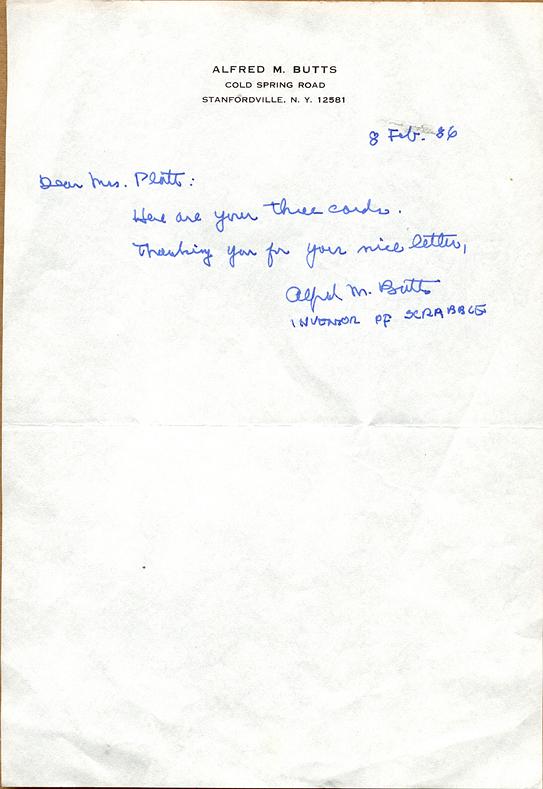 ALFRED M. BUTTS
COLD SPRING ROAD
STANFORDVILLE, N. Y. 12581
8 Feb. 86
Dear Mrs. Platt:
Here are your three cards.
Thanking you for your nice letter,
Alfred M. Butts
INVENTOR OF SCRABBLE